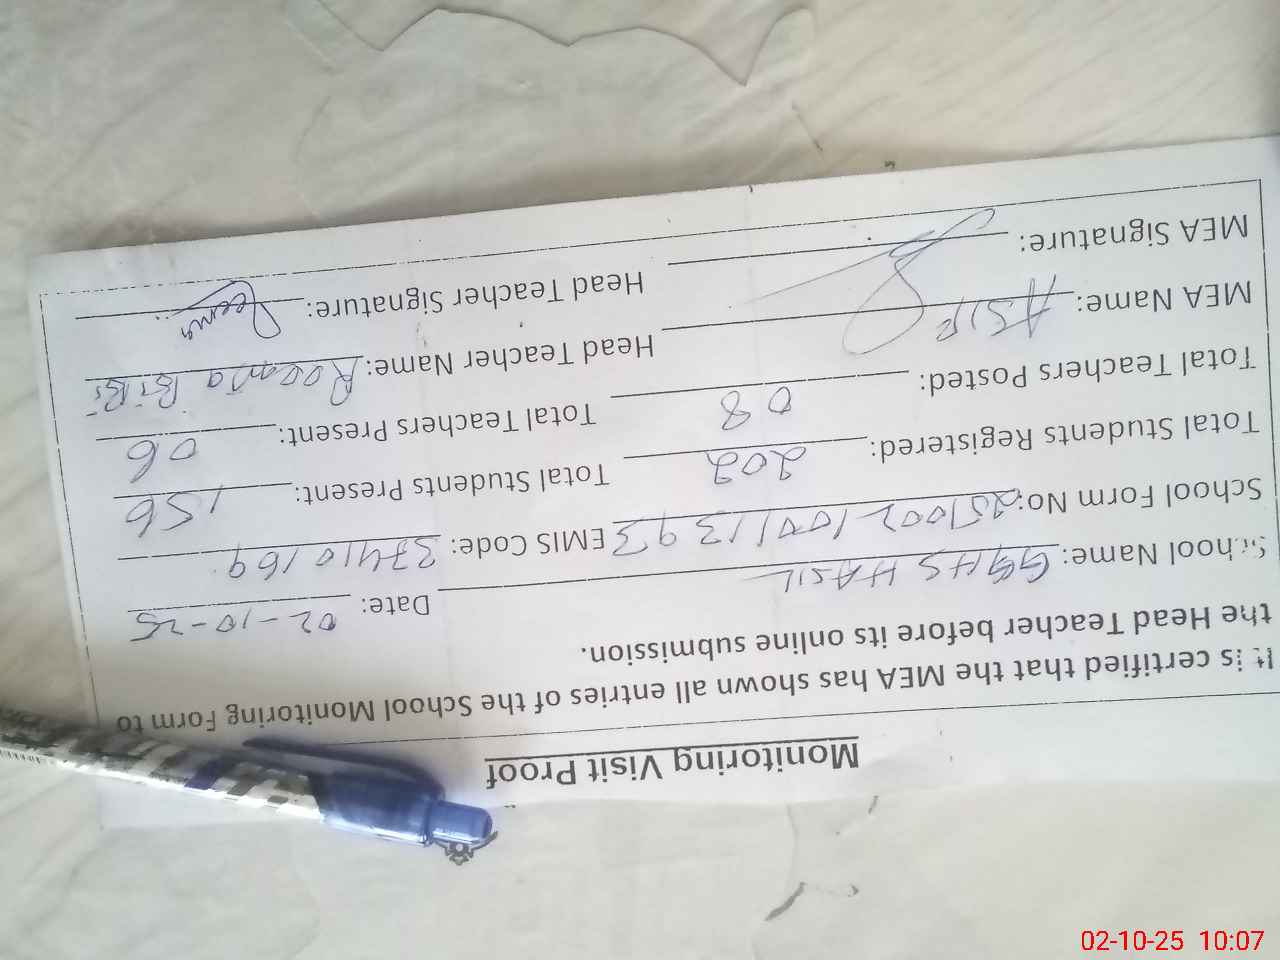 Monitoring Visit Proof
It is certified that the MEA has shown all entries of the School Monitoring Form to
the Head Teacher before its online submission.
School Name: GGHS HASIL Date: 02-10-25
School Form No: 25100210011393 EMIS Code: 37410169
Total Students Registered: 202 Total Students Present: 156
Total Teachers Posted: 08 Total Teachers Present: 06
MEA Name: ASIF Head Teacher Name: BiBi
MEA Signature: Head Teacher Signature:
02-10-25 10:07